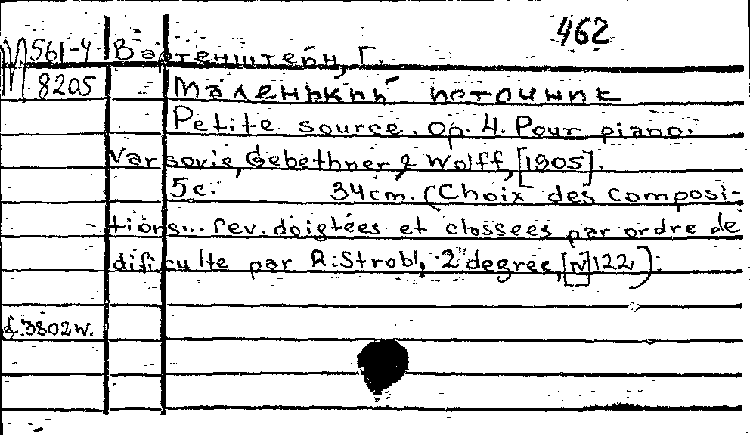 462
М 561-4 Вартенштейн, Г.
8205 Маленький источник
Petite source. Op. 4. Pour piano.
Varsovie, Gebethner & Wolff, [1905].
5c. 34cm. (Choix des composi-
tions... rev. doigtées et classées par ordre de
dificulté par R. Strobl, 2 degree, [N 122]).
d. 3802w.